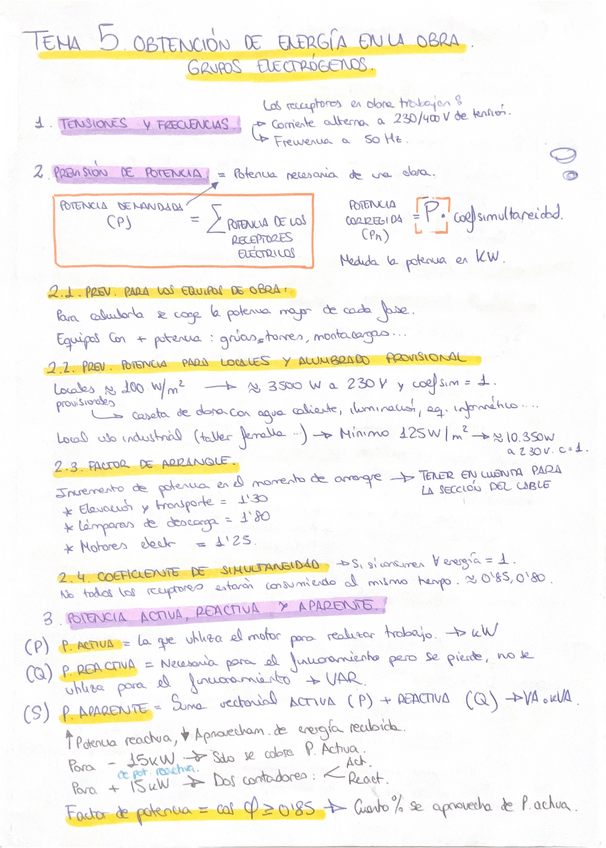 TEMA 5. OBTENCIÓN DE ENERGÍA EN LA OBRA.
GRUPOS ELECTRÓGENOS.
Los receptores en obra trabajan:
1. TENSIONES Y FRECUENCIAS. → Corriente alterna a 230/400 V de tensión.
↳ Frecuencia a 50 Hz.
2. PREVISIÓN DE POTENCIA = Potencia necesaria de una obra.
POTENCIA DEMANDADA (P) = ∑ POTENCIA DE LOS RECEPTORES ELÉCTRICOS
POTENCIA CORREGIDA (Pn) = P · coef simultaneidad.
Medida la potencia en KW.
2.1. PREV. PARA LOS EQUIPOS DE OBRA:
Para calcularla se coge la potencia mayor de cada fase.
Equipos con + potencia: grúas, torres, montacargas...
2.2. PREV. POTENCIA PARA LOCALES Y ALUMBRADO PROVISIONAL
Locales ≈ 100 W/m² → ≈ 3500 W a 230 V y coef sim = 1.
provisionales
↳ caseta de obra con agua caliente, iluminación, eq. informático...
Local uso industrial (taller ferralla..) → Mínimo 125 W/m² → ≈ 10.350 W
a 230 V. c = 1.
2.3. FACTOR DE ARRANQUE.
Incremento de potencia en el momento de arranque → TENER EN CUENTA PARA
LA SECCIÓN DEL CABLE
* Elevación y transporte = 1'30
* Lámparas de descarga = 1'80
* Motores electr = 1'25.
2.4. COEFICIENTE DE SIMULTANEIDAD → Si, si consumen ∀ energía = 1.
No todos los receptores estarán consumiendo al mismo tiempo. ≈ 0'85, 0'80.
3. POTENCIA ACTIVA, REACTIVA Y APARENTE.
(P) P. ACTIVA = La que utiliza el motor para realizar trabajo. → kW
(Q) P. REACTIVA = Necesaria para el funcionamiento pero se pierde, no se
utiliza para el funcionamiento → VAR.
(S) P. APARENTE = Suma vectorial ACTIVA (P) + REACTIVA (Q) → VA o kVA.
↑ Potencia reactiva, ↓ Aprovecham. de energía recibida.
Para - 15 kW → Sólo se cobra P. Activa.
de pot. reactiva.
Para + 15 kW → Dos contadores: < Act.
React.
Factor de potencia = cos φ ≥ 0'85 → Cuanto % se aprovecha de P. activa.